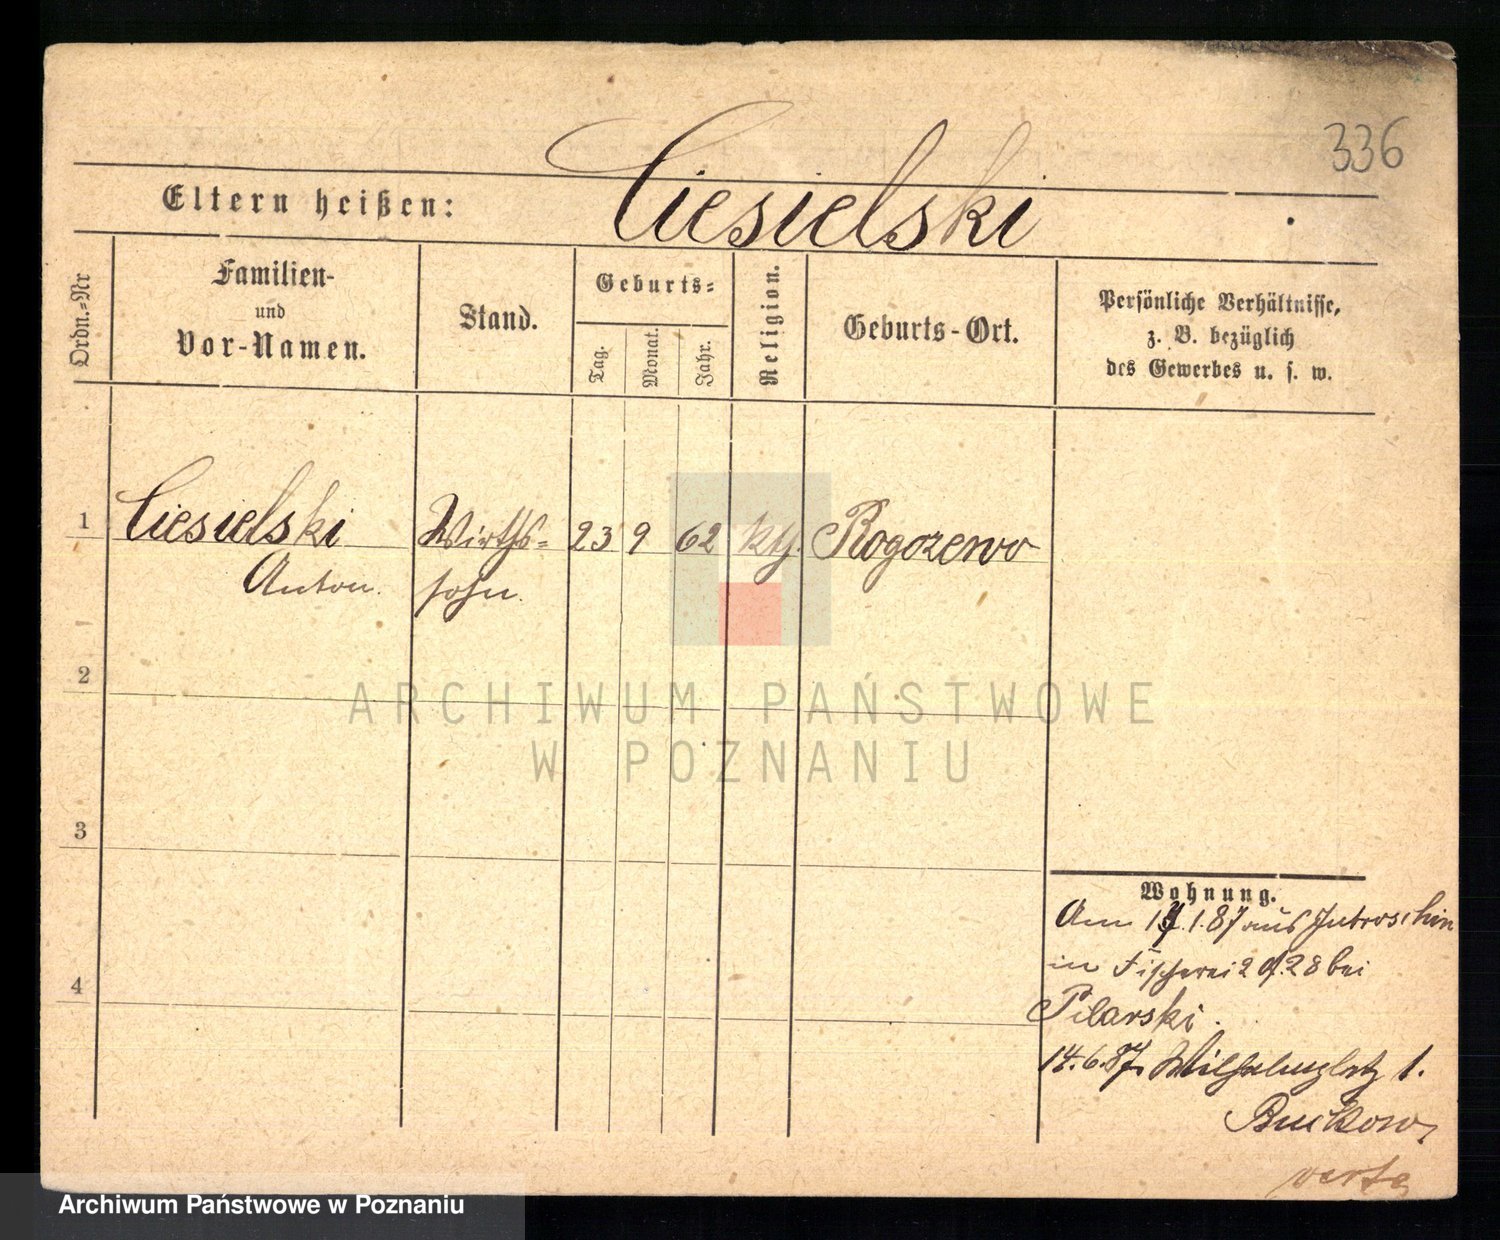 336
Eltern heißen: Ciesielski
Ordn.-Nr
Familien-
und
Vor-Namen.
Stand.
Geburts-
Tag.
Monat.
Jahr.
Religion.
Geburts-Ort.
Persönliche Verhältnisse,
z. B. bezüglich
des Gewerbes u. s. w.
1 Ciesielski Wirths- 23 9 62 kth. Rogozewo
Anton. sohn.
2
3
4
Wohnung.
Am 1.87 aus Jutroschin
in Fischerei 28 bei
Pilarski.
14.6.87. Wilhelmsplatz 1.
verte
ARCHIWUM PAŃSTWOWE
W POZNANIU
Archiwum Państwowe w Poznaniu